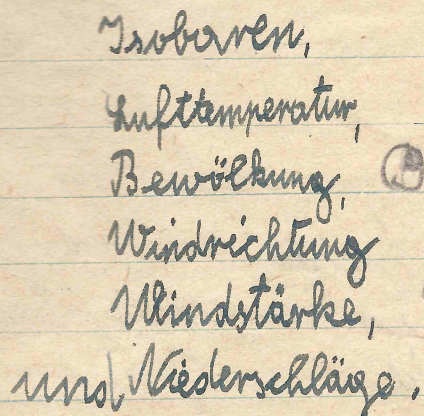 Isobaren,
Lufttemperatur,
Bewölkung,
Windrichtung
Windstärke,
und Niederschläge.